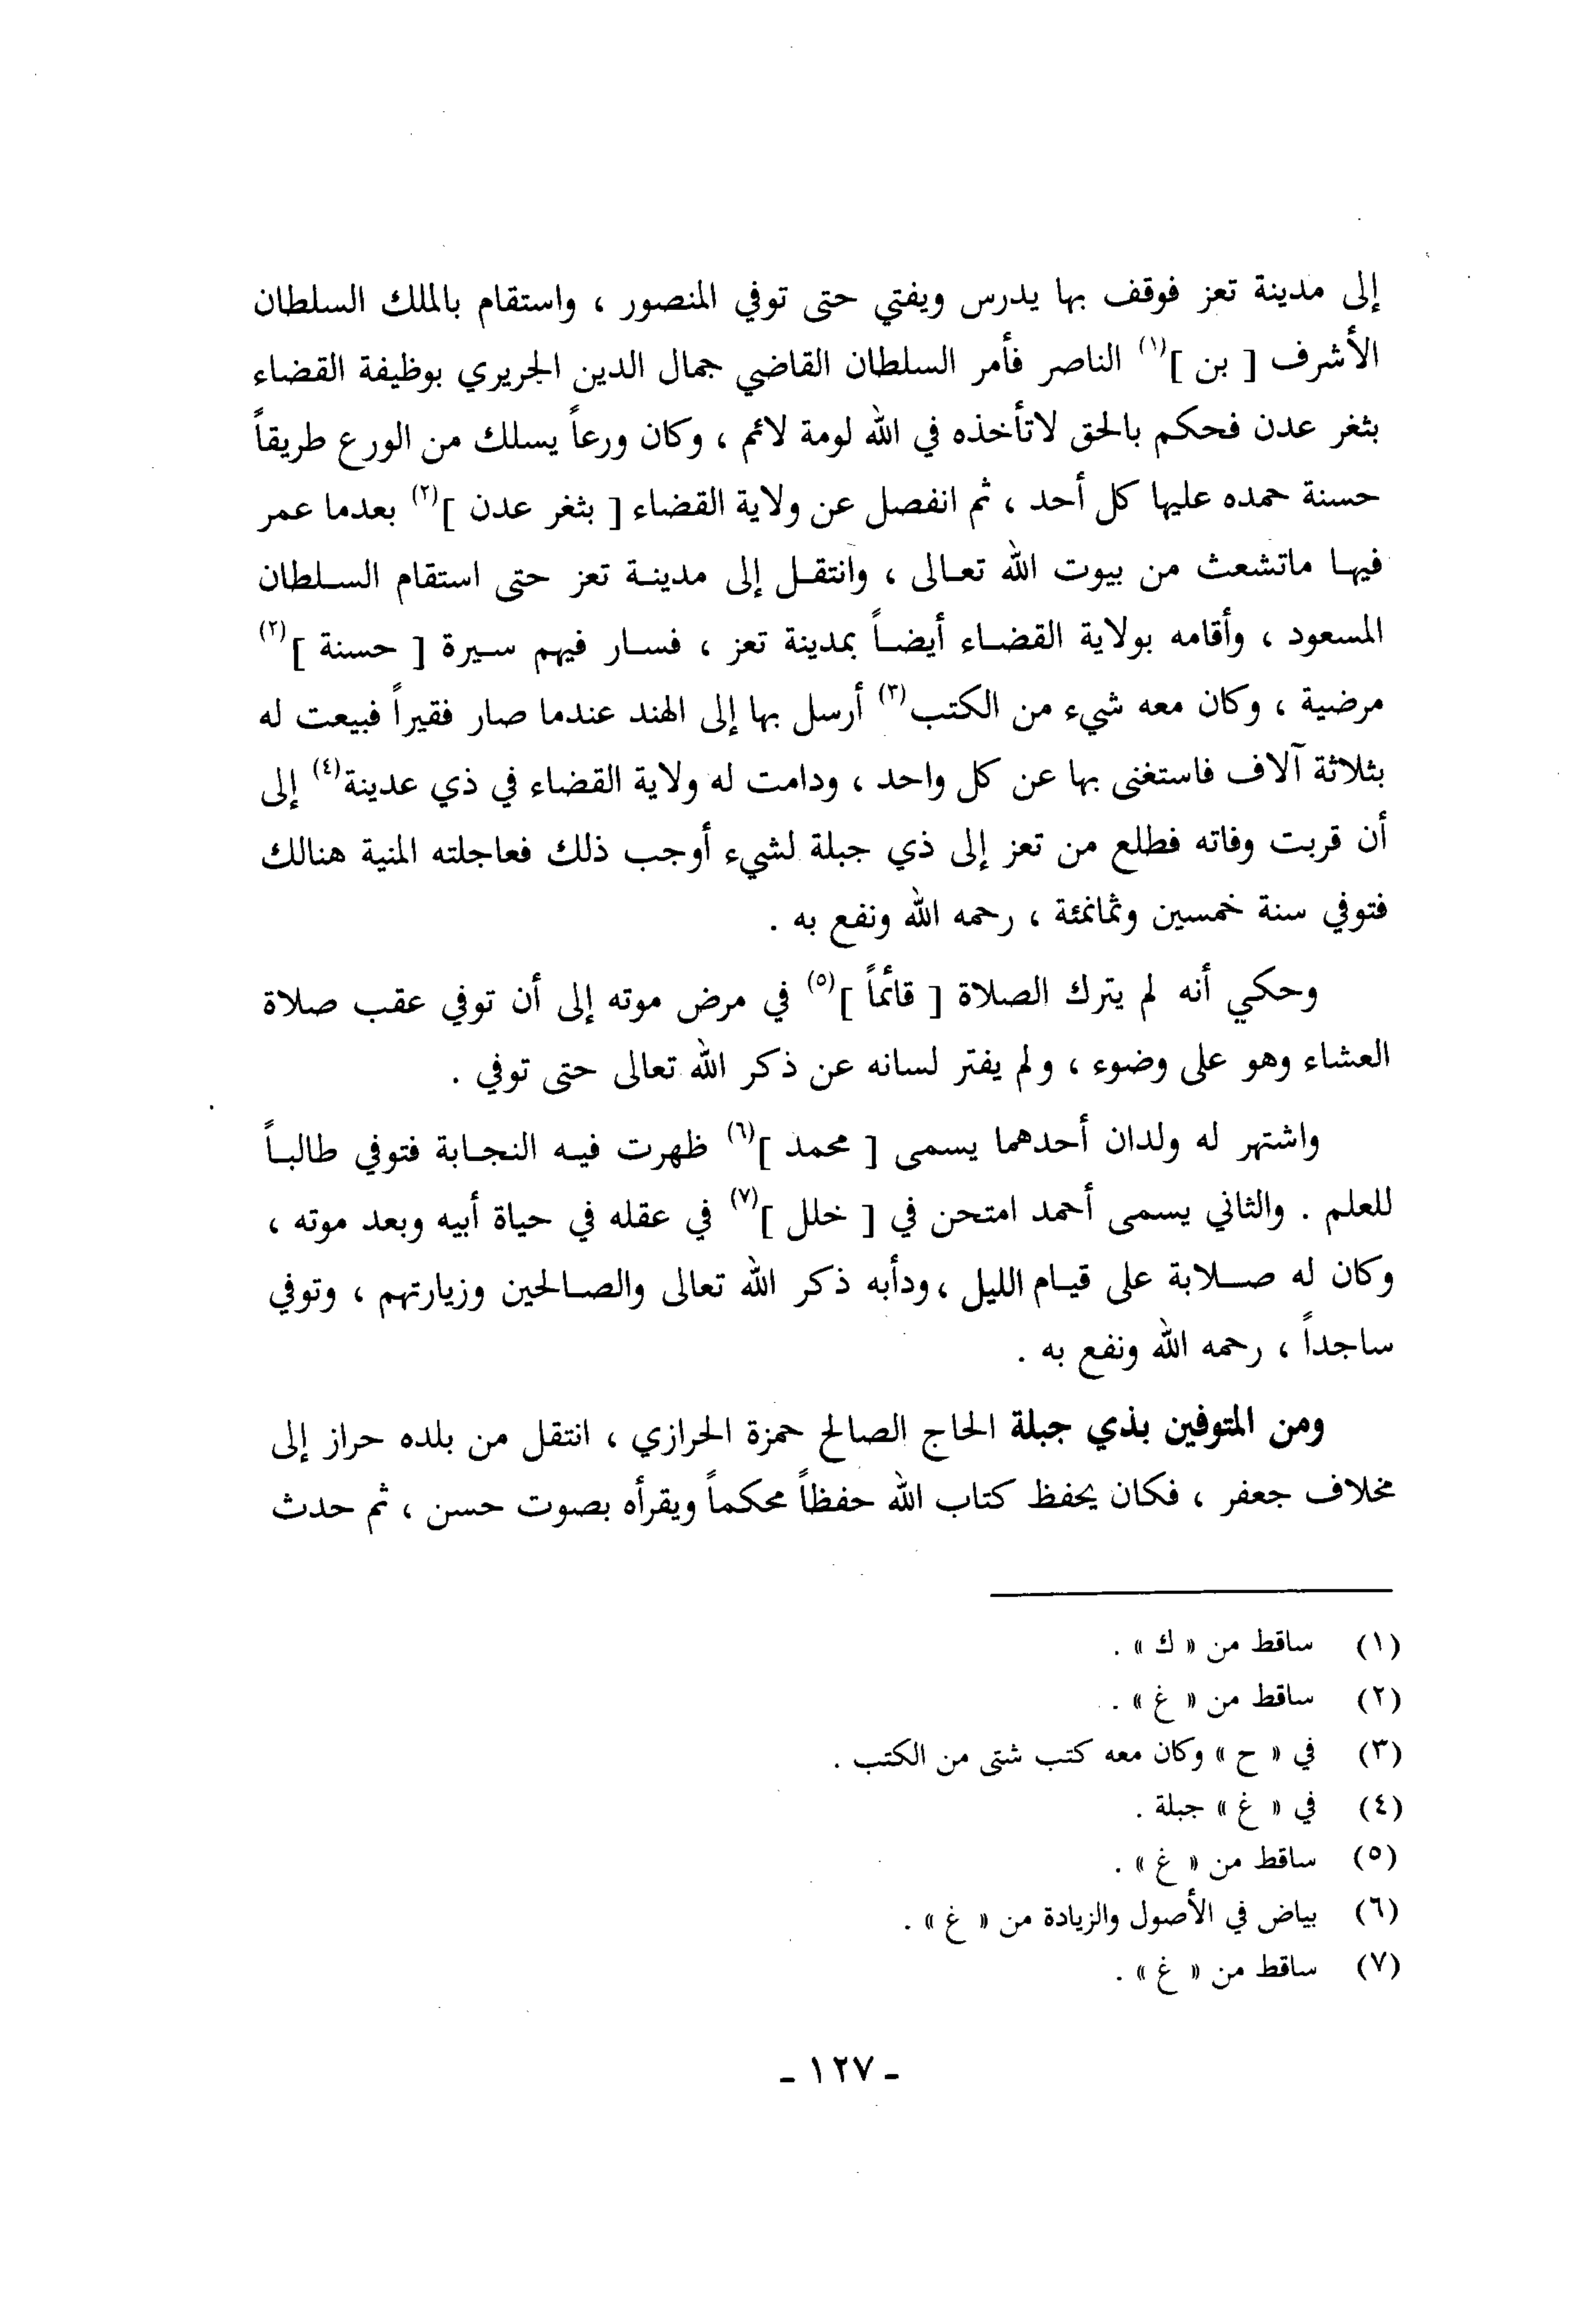 إلى مدينة تعز فوقف بها يدرس ويفتي حتى توفي المنصور ، واستقام بالملك السلطان
الأشرف [ بن ](١) الناصر فأمر السلطان القاضي جمال الدين الجريري بوظيفة القضاء
بثغر عدن فحكم بالحق لاتأخذه في الله لومة لائم ، وكان ورعاً يسلك من الورع طريقاً
حسنة حمده عليها كل أحد ، ثم انفصل عن ولاية القضاء [ بثغر عدن ](٢) بعدما عمر
فيها ماتشعث من بيوت الله تعالى ، وانتقل إلى مدينة تعز حتى استقام السلطان
المسعود ، وأقامه بولاية القضاء أيضاً بمدينة تعز ، فسار فيهم سيرة [ حسنة ](٢)
مرضية ، وكان معه شيء من الكتب(٣) أرسل بها إلى الهند عندما صار فقيراً فبيعت له
بثلاثة آلاف فاستغنى بها عن كل واحد ، ودامت له ولاية القضاء في ذي عدينة(٤) إلى
أن قربت وفاته فطلع من تعز إلى ذي جبلة لشيء أوجب ذلك فعاجلته المنية هنالك
فتوفي سنة خمسين وثمانمئة ، رحمه الله ونفع به .
وحكي أنه لم يترك الصلاة [ قائماً ](٥) في مرض موته إلى أن توفي عقب صلاة
العشاء وهو على وضوء ، ولم يفتر لسانه عن ذكر الله تعالى حتى توفي .
واشتهر له ولدان أحدهما يسمى [ محمد ](٦) ظهرت فيه النجابة فتوفي طالباً
للعلم . والثاني يسمى أحمد امتحن في [ خلل ](٧) في عقله في حياة أبيه وبعد موته ،
وكان له صلابة على قيام الليل ، ودأبه ذكر الله تعالى والصالحين وزيارتهم ، وتوفي
ساجداً ، رحمه الله ونفع به .
ومن المتوفين بذي جبلة الحاج الصالح حمزة الحرازي ، انتقل من بلده حراز إلى
مخلاف جعفر ، فكان يحفظ كتاب الله حفظاً محكماً ويقرأه بصوت حسن ، ثم حدث
(١) ساقط من « ك » .
(٢) ساقط من « غ » .
(٣) في « ح » وكان معه كتب شتى من الكتب .
(٤) في « غ » جبلة .
(٥) ساقط من « غ » .
(٦) بياض في الأصول والزيادة من « غ » .
(٧) ساقط من « غ » .
- ١٢٧ -